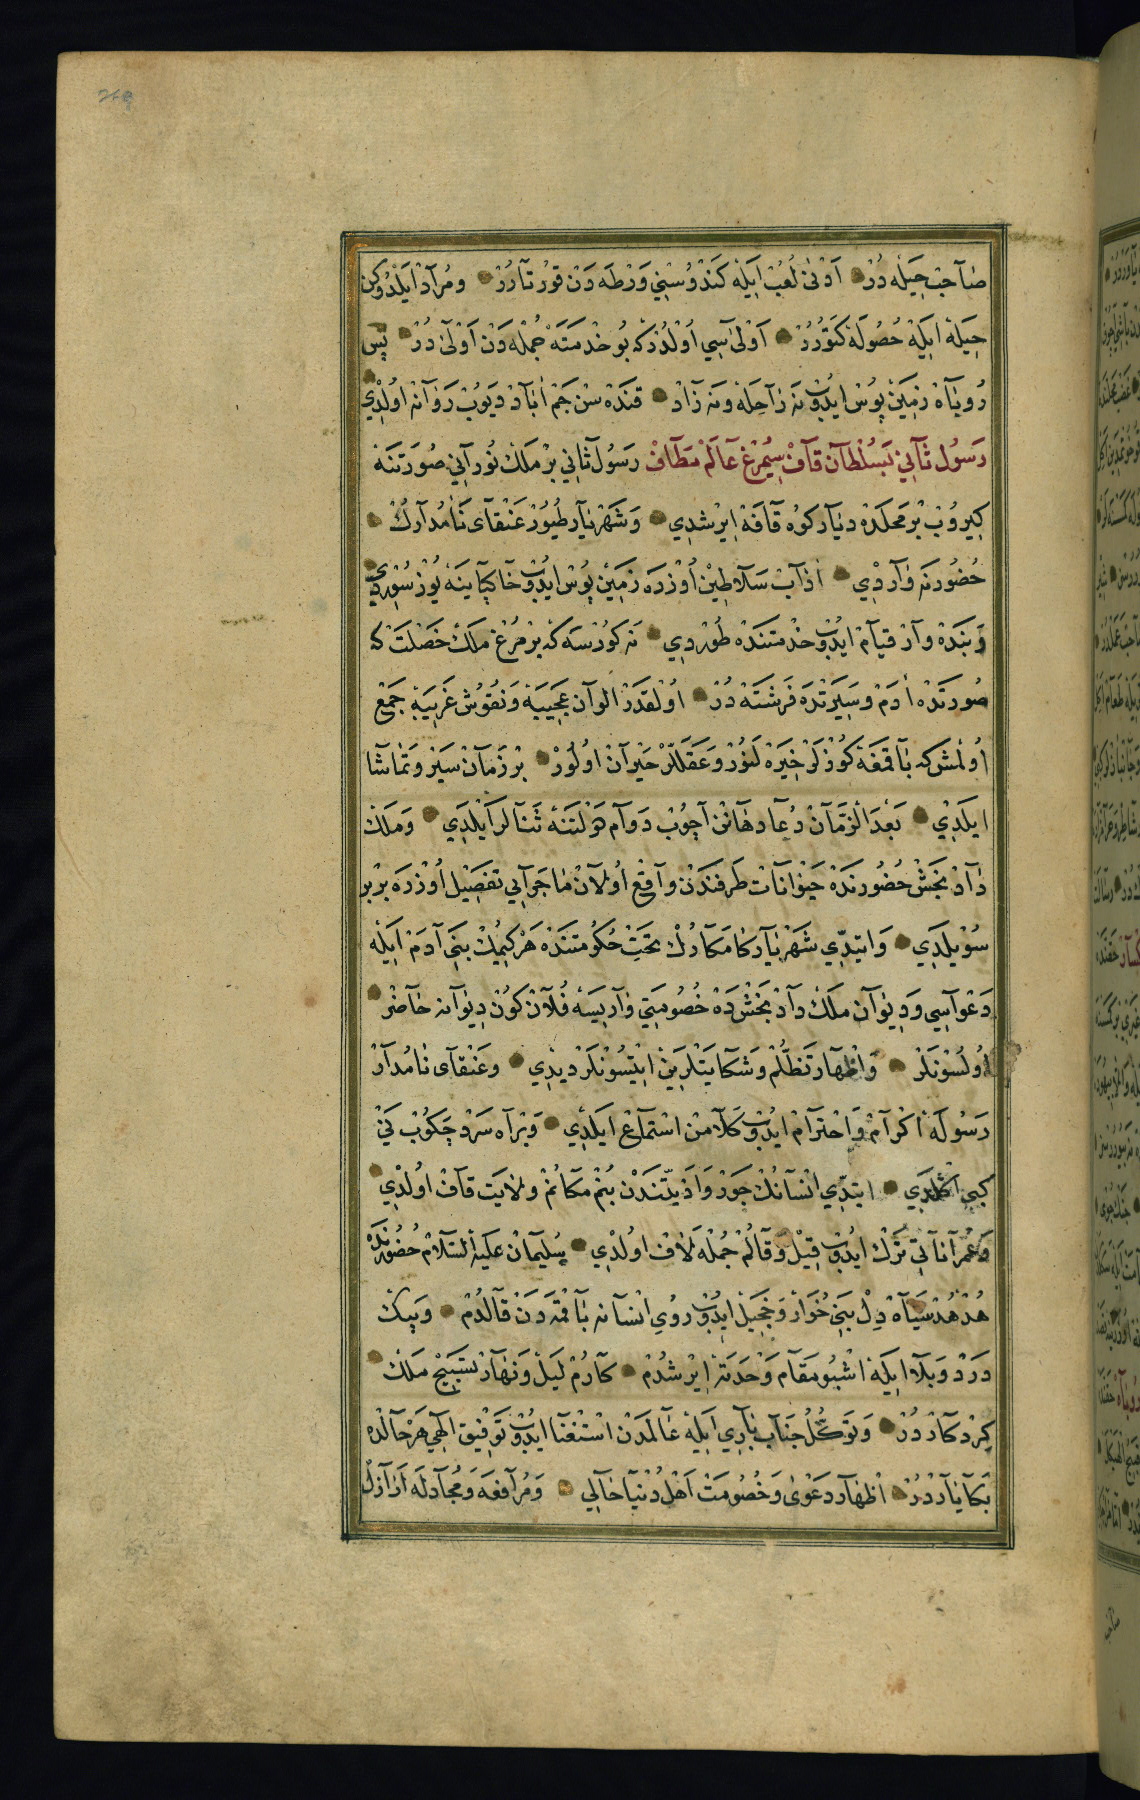 صَاحِبْ حِيَلَه دُرْ اَدْنٰى لُعَبْ اِيلَه كَنْدُوسْنِي وَرْطَه دَنْ قُورْتَارُرْ ومُرَادْ اَيْلَدُوكِنْ
حِيلَه اِيلَه حُصُولَه كَتُورُرْ اَوْلٰى سِي اُولْدُرْكِه بُو خِدْمَتَه جُمْلَه دَنْ اَوْلٰى دُرْ پَس
رُوبَاهْ زَمِينْ پُوسْ ايدُوبْ نَه رَاحِلَه ونَه زَادْ قَنْدَه سِنْ جَمْ اٰبَادْ دَيُوبْ رَوَانَه اُولْدِي
رَسُولِ ثَانِي بَسُلْطَانِ قَافْ سِيمُرْغِ عَالَمْ مَطَافْ رَسُولِ ثَانِي بِرْ مَلَكْ نُورَانِي صُورَتِنَه
كِيرُوبْ بِرْ مَحَلَدَه دِيَارِ كُوهِ قَافَه اِيرِشْدِي وَشَهْرِيَارِ طُيُورْ عَنْقَاىِ نَامْدَارُكْ
حُضُورِنَه وَارْدِي اٰدَابِ سَلَاطِينْ اُوزْرَه زَمِينْ پُوسْ ايدُوبْ خَاكِپَايِنَه يُوزْ سُورْدِي
وَبَنْدَه وَارْ قِيَامْ ايدُوبْ خِدْمَتِنْدَه طُورْدِي نَه كُورْسَه كِه بِرْ مُرْغِ مَلَكْ خَصْلَتْ كِه
صُورَتْدَه اٰدَمْ وَسِيرَتْدَه فَرِشْتَه دُرْ اُولْقَدَرْ اَلْوَانِ عَجِيبَه وَنُقُوشِ غَرِيبَه جَمْع
اُولْمِشْ كِه بَاقْمَغَه كُوزْلَرْ خِيرَه لَنُورْ وَعَقْلَلَرْ حَيْرَانْ اُولُورْ بِرْ زَمَانْ سَيْر وَتَمَاشَا
ايلَدِي بَعْدَ الزَّمَانْ دُعَا دهَانِنْ آچُوبْ دَوَامِ دَوْلَتِنَه ثَنَالَرْ اَيْلَدِي وَمَلَكْ
دَادْ بَخْشْ حُضُورِنْدَه حَيْوَانَاتْ طَرَفِنْدَنْ وَاقِعْ اُولَانْ مَاجَرَايِي تَفْصِيلْ اُوزْرَه بِرْ بِرْ
سُويْلَدِي وَايتدِي شَهْرِيَارِ كَامْكَارُكْ تَحْتِ حُكُومَتِنْدَه هَرْ كِيمُكْ بَنِي آدَمْ اِيلَه
دَعْوَاسِي وَدِيوَانِ مَلَكْ دَادْ بَخْشْدَه خُصُومَتِي وَارِيسَه فُلَانْ كُونْ دِيوَانَه حَاضِرْ
اُولْسُونْلَرْ وَاِظْهَارِ تَظَلُّمْ وَشَكَايَتْلَرِينْ ايتْسُونْلَرْ دِيدِي وعَنْقَاى نَامْدَارْ
رَسُولَه اِكْرَامْ وَاحْتِرَامْ ايدُوبْ كَلَامِنْ اسْتِمَاعْ ايلَدِي وَبِرْ آهِ سَرْدْ چَكُوبْ نَيْ
كِبِي ايكْلَدِي ايتدِي اِنْسَانُكْ جَوْرْ وَاَذِيَّتِنْدَنْ بَنُمْ مَكَانُمْ ولَايَتِ قَافْ اُولْدِي
وَعُمْرَانَاتِي تَرْكْ ايدُوبْ قِيلْ وَقَالُمْ جُمْلَه لَافْ اُولْدِي سُلَيْمَانْ عَلَيْهِ السَّلَامْ حُضُورِنْدَه
هُدْهُدْ سِيَاهْ دِلْ بَنِي خُوَارْ وَخَجِيلْ ايدُوبْ رُوىِ اِنْسَانَه بَاقْمَه دَنْ قَالْدُمْ وَبِيكْ
دَرْدْ وَبَلَا اِيلَه اُشْبُو مَقَامِ وَحْدَتَه اِيرِشْدُمْ كَارُمْ لَيْلْ وَنَهَارْ تَسْبِيحِ مَلَكْ
كِرْدِكَارْ دُرْ وَتَوَكُّلْ جَنَابِ بَارِي اِيلَه عَالَمْدَنْ اِسْتِغْنَا ايدُوبْ تَوْفِيقِ اِلٰهِي هَرْ حَالْدَه
بَكَا يَارْ دُرْ اِظْهَارِ دَعْوٰى وَخُصُومَتْ اَهْلِ دُنْيَا حَالِي وَمُرَافَعَه وَمُجَادَلَه